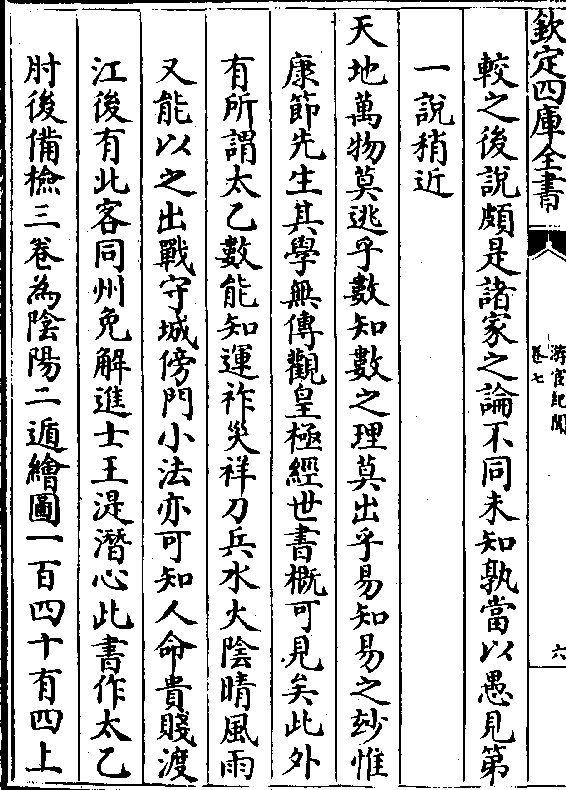 欽定四庫全書
游宦紀聞
卷七
六
較之後說頗是諸家之論不同未知孰當以愚見第
一說稍近
天地萬物莫逃乎數知數之理莫出乎易知易之玅惟
康節先生其學無傳觀皇極經世書概可見矣此外
有所謂太乙數能知運祚災祥刀兵水火陰晴風雨
又能以之出戰守城傍門小法亦可知人命貴賤渡
江後有此客同州免解進士王湜潛心此書作太乙
肘後備檢三卷為陰陽二遁繪圖一百四十有四上